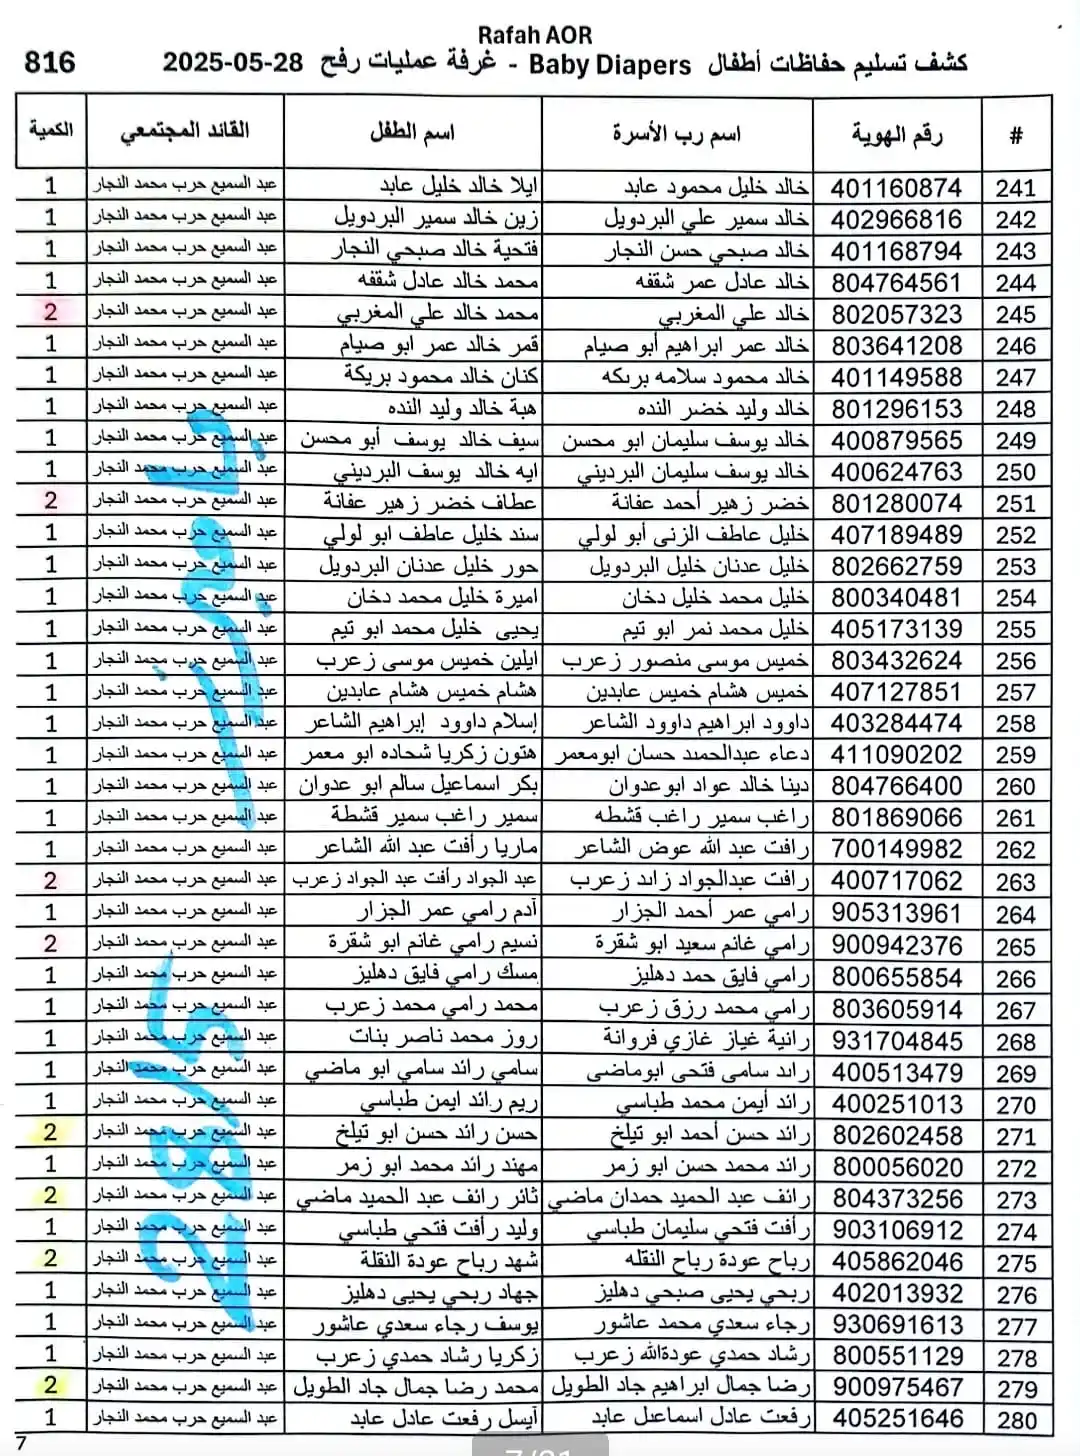 Rafah AOR
كشف تسليم حفاظات أطفال Baby Diapers - غرفة عمليات رفح 28-05-2025 816
# رقم الهوية اسم رب الأسرة اسم الطفل القائد المجتمعي الكمية
241 401160874 خالد خليل محمود عابد ايلا خالد خليل عابد عبد السميع حرب محمد النجار 1
242 402966816 خالد سمير علي البردويل زين خالد سمير البردويل عبد السميع حرب محمد النجار 1
243 401168794 خالد صبحي حسن النجار فتحية خالد صبحي النجار عبد السميع حرب محمد النجار 1
244 804764561 خالد عادل عمر شقفه محمد خالد عادل شقفه عبد السميع حرب محمد النجار 1
245 802057323 خالد علي المغربي محمد خالد علي المغربي عبد السميع حرب محمد النجار 2
246 803641208 خالد عمر ابراهيم أبو صيام قمر خالد عمر ابو صيام عبد السميع حرب محمد النجار 1
247 401149588 خالد محمود سلامه بريكه كنان خالد محمود بريكة عبد السميع حرب محمد النجار 1
248 801296153 خالد وليد خضر النده هبة خالد وليد النده عبد السميع حرب محمد النجار 1
249 400879565 خالد يوسف سليمان ابو محسن سيف خالد يوسف أبو محسن عبد السميع حرب محمد النجار 1
250 400624763 خالد يوسف سليمان البرديني ايه خالد يوسف البرديني عبد السميع حرب محمد النجار 1
251 801280074 خضر زهير أحمد عفانة عطاف خضر زهير عفانة عبد السميع حرب محمد النجار 2
252 407189489 خليل عاطف الزنى أبو لولي سند خليل عاطف ابو لولي عبد السميع حرب محمد النجار 1
253 802662759 خليل عدنان خليل البردويل حور خليل عدنان البردويل عبد السميع حرب محمد النجار 1
254 800340481 خليل محمد خليل دخان اميرة خليل محمد دخان عبد السميع حرب محمد النجار 1
255 405173139 خليل محمد نمر ابو تيم يحيى خليل محمد ابو تيم عبد السميع حرب محمد النجار 1
256 803432624 خميس موسى منصور زعرب ايلين خميس موسى زعرب عبد السميع حرب محمد النجار 1
257 407127851 خميس هشام خميس عابدين هشام خميس هشام عابدين عبد السميع حرب محمد النجار 1
258 403284474 داوود ابراهيم داوود الشاعر إسلام داوود إبراهيم الشاعر عبد السميع حرب محمد النجار 1
259 411090202 دعاء عبدالحميد حسان ابومعمر هتون زكريا شحاده ابو معمر عبد السميع حرب محمد النجار 1
260 804766400 دينا خالد عواد ابوعدوان بكر اسماعيل سالم ابو عدوان عبد السميع حرب محمد النجار 1
261 801869066 راغب سمير راغب قشطه سمير راغب سمير قشطة عبد السميع حرب محمد النجار 1
262 700149982 رافت عبد الله عوض الشاعر ماريا رأفت عبد الله الشاعر عبد السميع حرب محمد النجار 1
263 400717062 رافت عبدالجواد زايد زعرب عبد الجواد رأفت عبد الجواد زعرب عبد السميع حرب محمد النجار 2
264 905313961 رامي عمر أحمد الجزار آدم رامي عمر الجزار عبد السميع حرب محمد النجار 1
265 900942376 رامي غانم سعيد ابو شقرة نسيم رامي غانم ابو شقرة عبد السميع حرب محمد النجار 2
266 800655854 رامي فايق حمد دهليز مسك رامي فايق دهليز عبد السميع حرب محمد النجار 1
267 803605914 رامي محمد رزق زعرب محمد رامي محمد زعرب عبد السميع حرب محمد النجار 1
268 931704845 رانية غياز غازي فروانة روز محمد ناصر بنات عبد السميع حرب محمد النجار 1
269 400513479 رايد سامى فتحى ابوماضى سامي رائد سامي ابو ماضي عبد السميع حرب محمد النجار 1
270 400251013 رائد أيمن محمد طباسي ريم رائد ايمن طباسي عبد السميع حرب محمد النجار 1
271 802602458 رائد حسن أحمد ابو تيلخ حسن رائد حسن ابو تيلخ عبد السميع حرب محمد النجار 2
272 800056020 رائد محمد حسن ابو زمر مهند رائد محمد ابو زمر عبد السميع حرب محمد النجار 1
273 804373256 رائف عبد الحميد حمدان ماضي ثائر رائف عبد الحميد ماضي عبد السميع حرب محمد النجار 2
274 903106912 رأفت فتحي سليمان طباسي وليد رأفت فتحي طباسي عبد السميع حرب محمد النجار 1
275 405862046 رباح عودة رباح النقله شهد رباح عودة النقلة عبد السميع حرب محمد النجار 2
276 402013932 ربحي يحيى صبحي دهليز جهاد ربحي يحيى دهليز عبد السميع حرب محمد النجار 1
277 930691613 رجاء سعدي محمد عاشور يوسف رجاء سعدي عاشور عبد السميع حرب محمد النجار 1
278 800551129 رشاد حمدي عودةالله زعرب زكريا رشاد حمدي زعرب عبد السميع حرب محمد النجار 1
279 900975467 رضا جمال ابراهيم جاد الطويل محمد رضا جمال جاد الطويل عبد السميع حرب محمد النجار 2
280 405251646 رفعت عادل اسماعيل عابد آيسل رفعت عادل عابد عبد السميع حرب محمد النجار 1
7